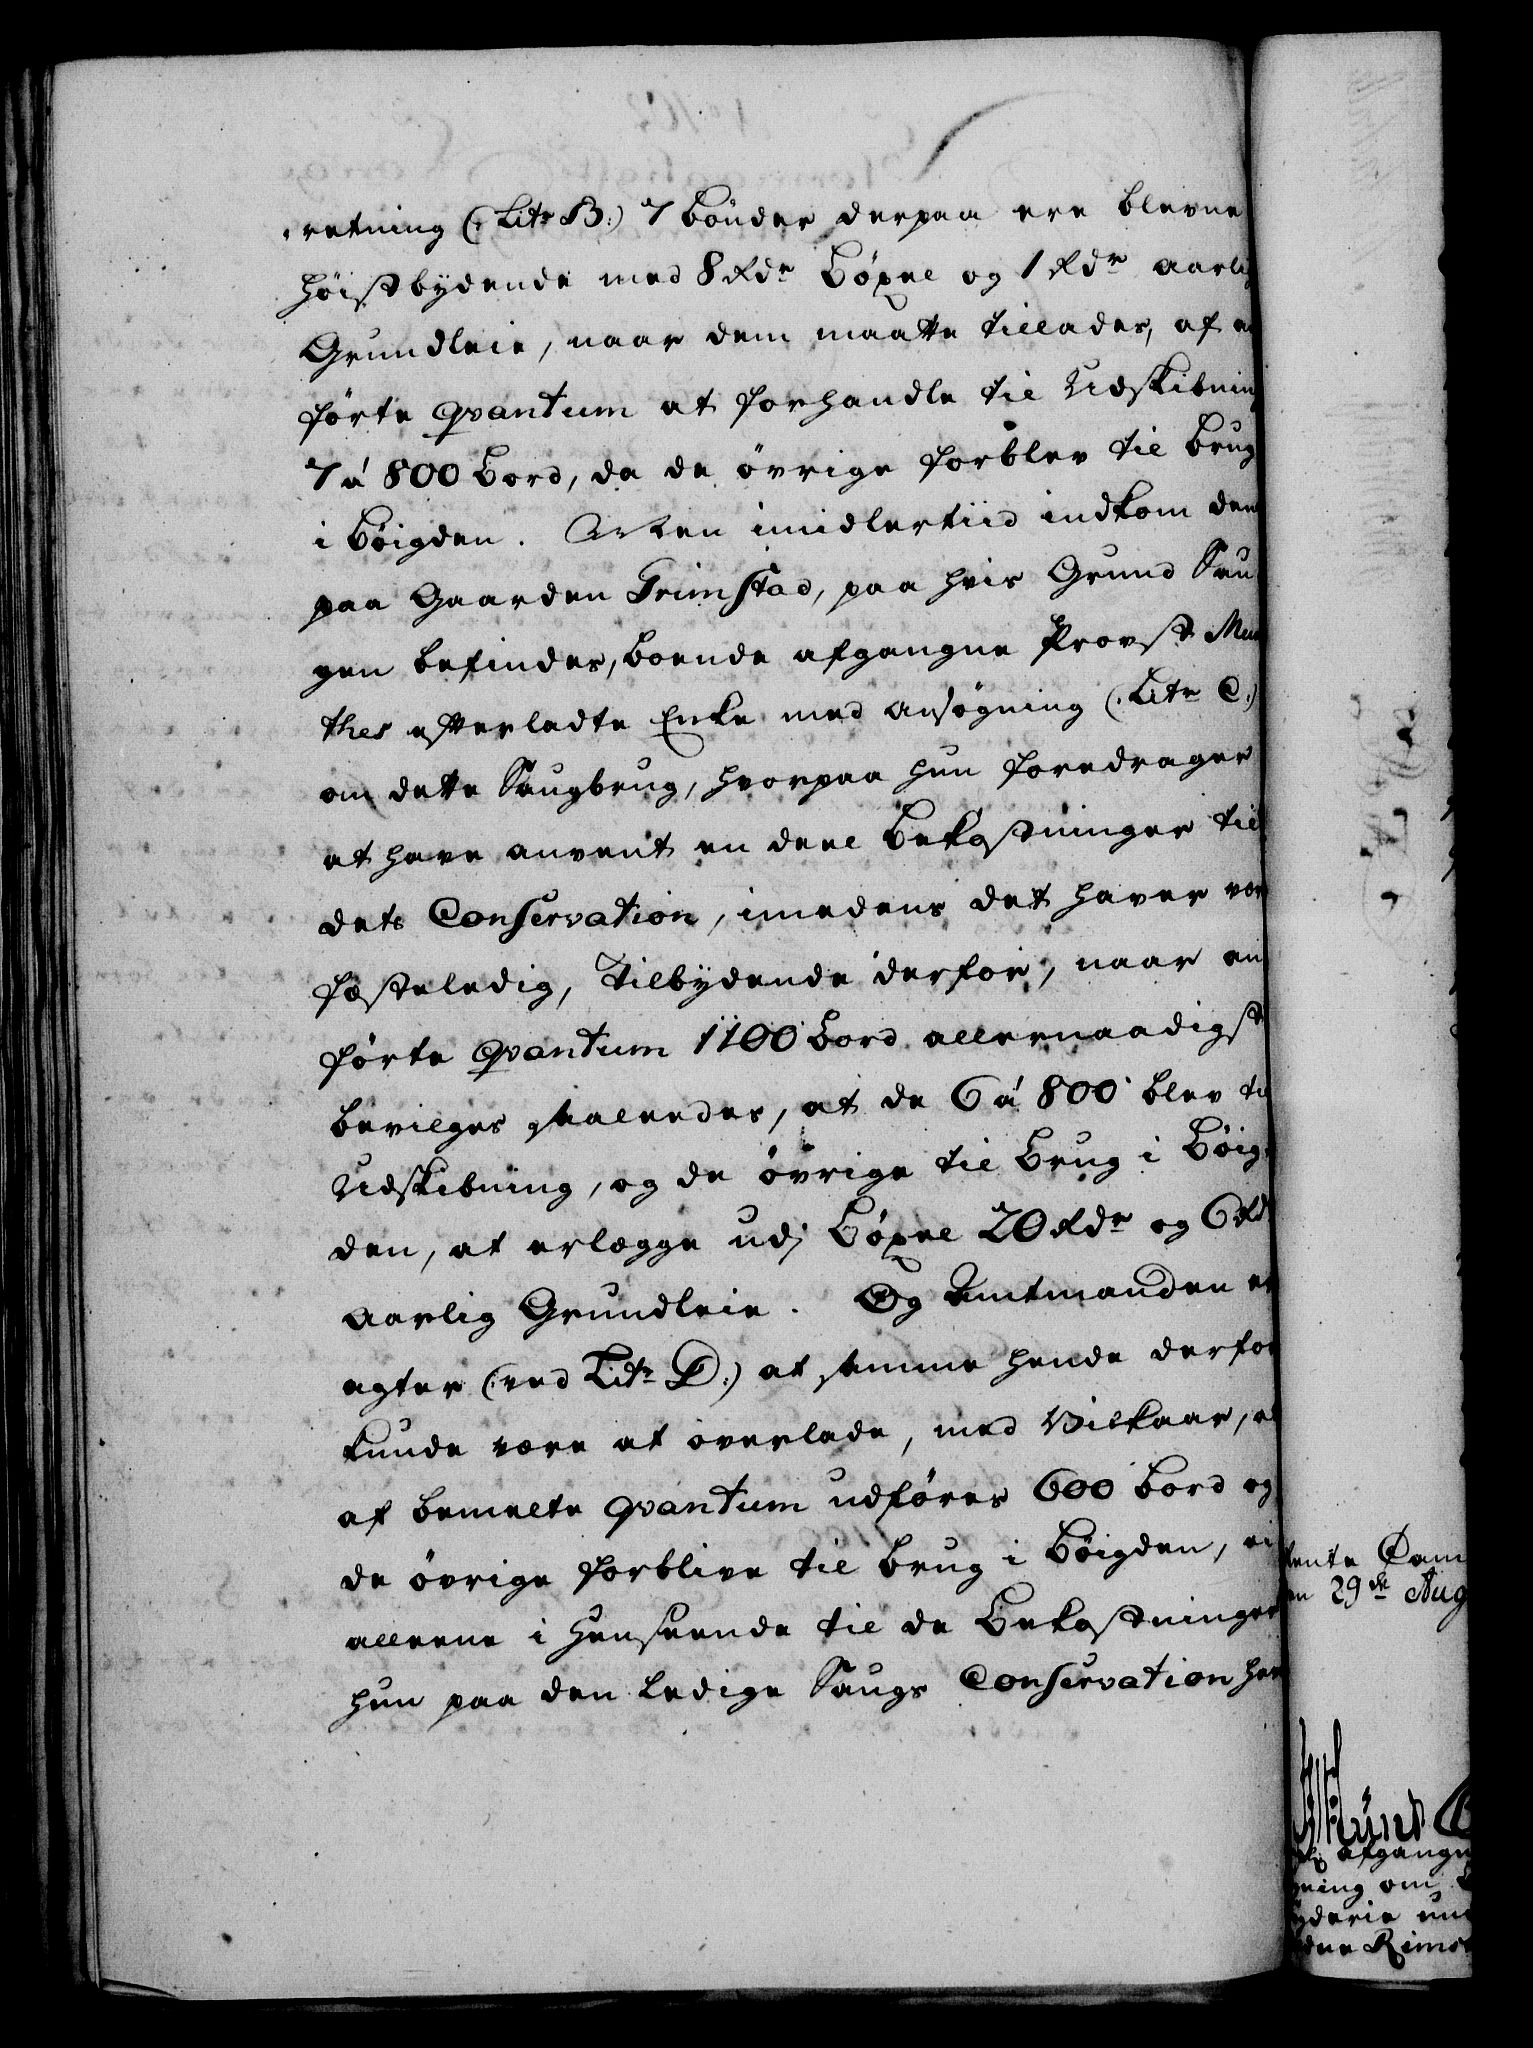 retning (: Litr B:) 7 Bönder derpaa ere blevne
höistbydende med 8 Rdr Böxel og 1 Rdr aarlig
Grundleie, naar dem maatte tillades, af
förte qvantum at forhandle til Udskibning
7 á 800 Bord, da de övrige forblev til Brug
i Böigden. Men imidlertiid indkom den
paa Gaarden Trimstad, paa hvis Grund Sau
gen befindes, boende afgangne Provst Mun
thes efterladte Enke med ansögning (: Litr C:)
om dette Saugbrug, hvorpaa hun foredrager
at have anvent en deel Bekostninger til
dets Conservation, imedens det haver vær
festeledig, Tilbydende derfor, naar an
förte qvantum 1100 Bord allernaadigst
bevilges saaledes, at de 6 á 800 blev til
Udskibning, og de övrige til Brug i Böig
den, at erlægge udj Böxel 20 Rdr og 6 Rd
aarlig Grundleie. Og Amtmanden er
agter (: ved Litr D:) at samme hende derfor
kunde være at overlade, med Vilkaar, at
af bemelte qvantum udföres 600 Bord og
de övrige forblive til Brug i Böigden, ei
alleene i Henseende til de Bekostninger
hun paa den ledige Saugs Conservation har
Rente Cam
en 29de Aug
afgangn
ning om
yderie un
den Rims